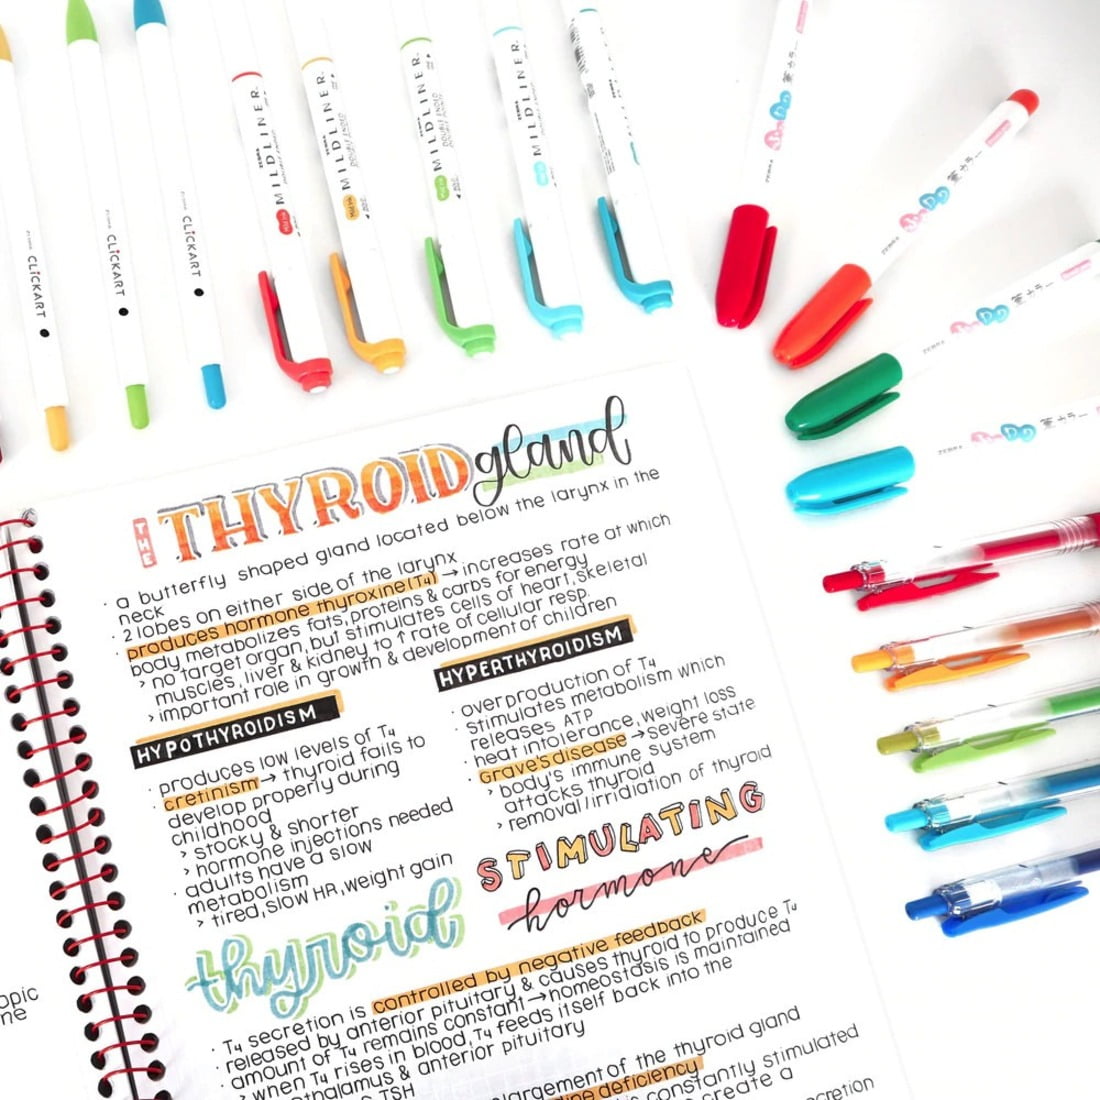 CLiCKART
CLiCKART
CLiCKART
ZEBRA MILDLINER
ZEBRA MILDLINER
ZEBRA MILDLINER
ZEBRA MILDLINER
ZEBRA
ZEBRA
ZEBRA
ZEBRA
THE THYROID gland
· a butterfly shaped gland located below the larynx in the
neck
· 2 lobes on either side of the larynx
· produces hormone thyroxine (T4) → increases rate at which
body metabolizes fats, proteins & carbs for energy
> no target organ, but stimulates cells of heart, skeletal
muscles, liver & kidney to ↑ rate of cellular resp.
> important role in growth & development of children
HYPOTHYROIDISM
· produces low levels of T4
· cretinism → thyroid fails to
develop properly during
childhood
> stocky & shorter
> hormone injections needed
· adults have a slow
metabolism
> tired, slow HR, weight gain
HYPERTHYROIDISM
· overproduction of T4
· stimulates metabolism which
releases ATP
· heat intolerance, weight loss
· grave's disease → severe state
> body's immune system
attacks thyroid
> removal/irridiation of thyroid
thyroid STIMULATING
hormone
· T4 secretion is controlled by negative feedback
· released by anterior pituitary & causes thyroid to produce T4
· amount of T4 remains constant → homeostasis is maintained
· when T4 rises in blood, T4 feeds itself back into the
thalamus & anterior pituitary
TSH
largement of the thyroid gland
deficiency
constantly stimulated
create a
secretion
opic
ne